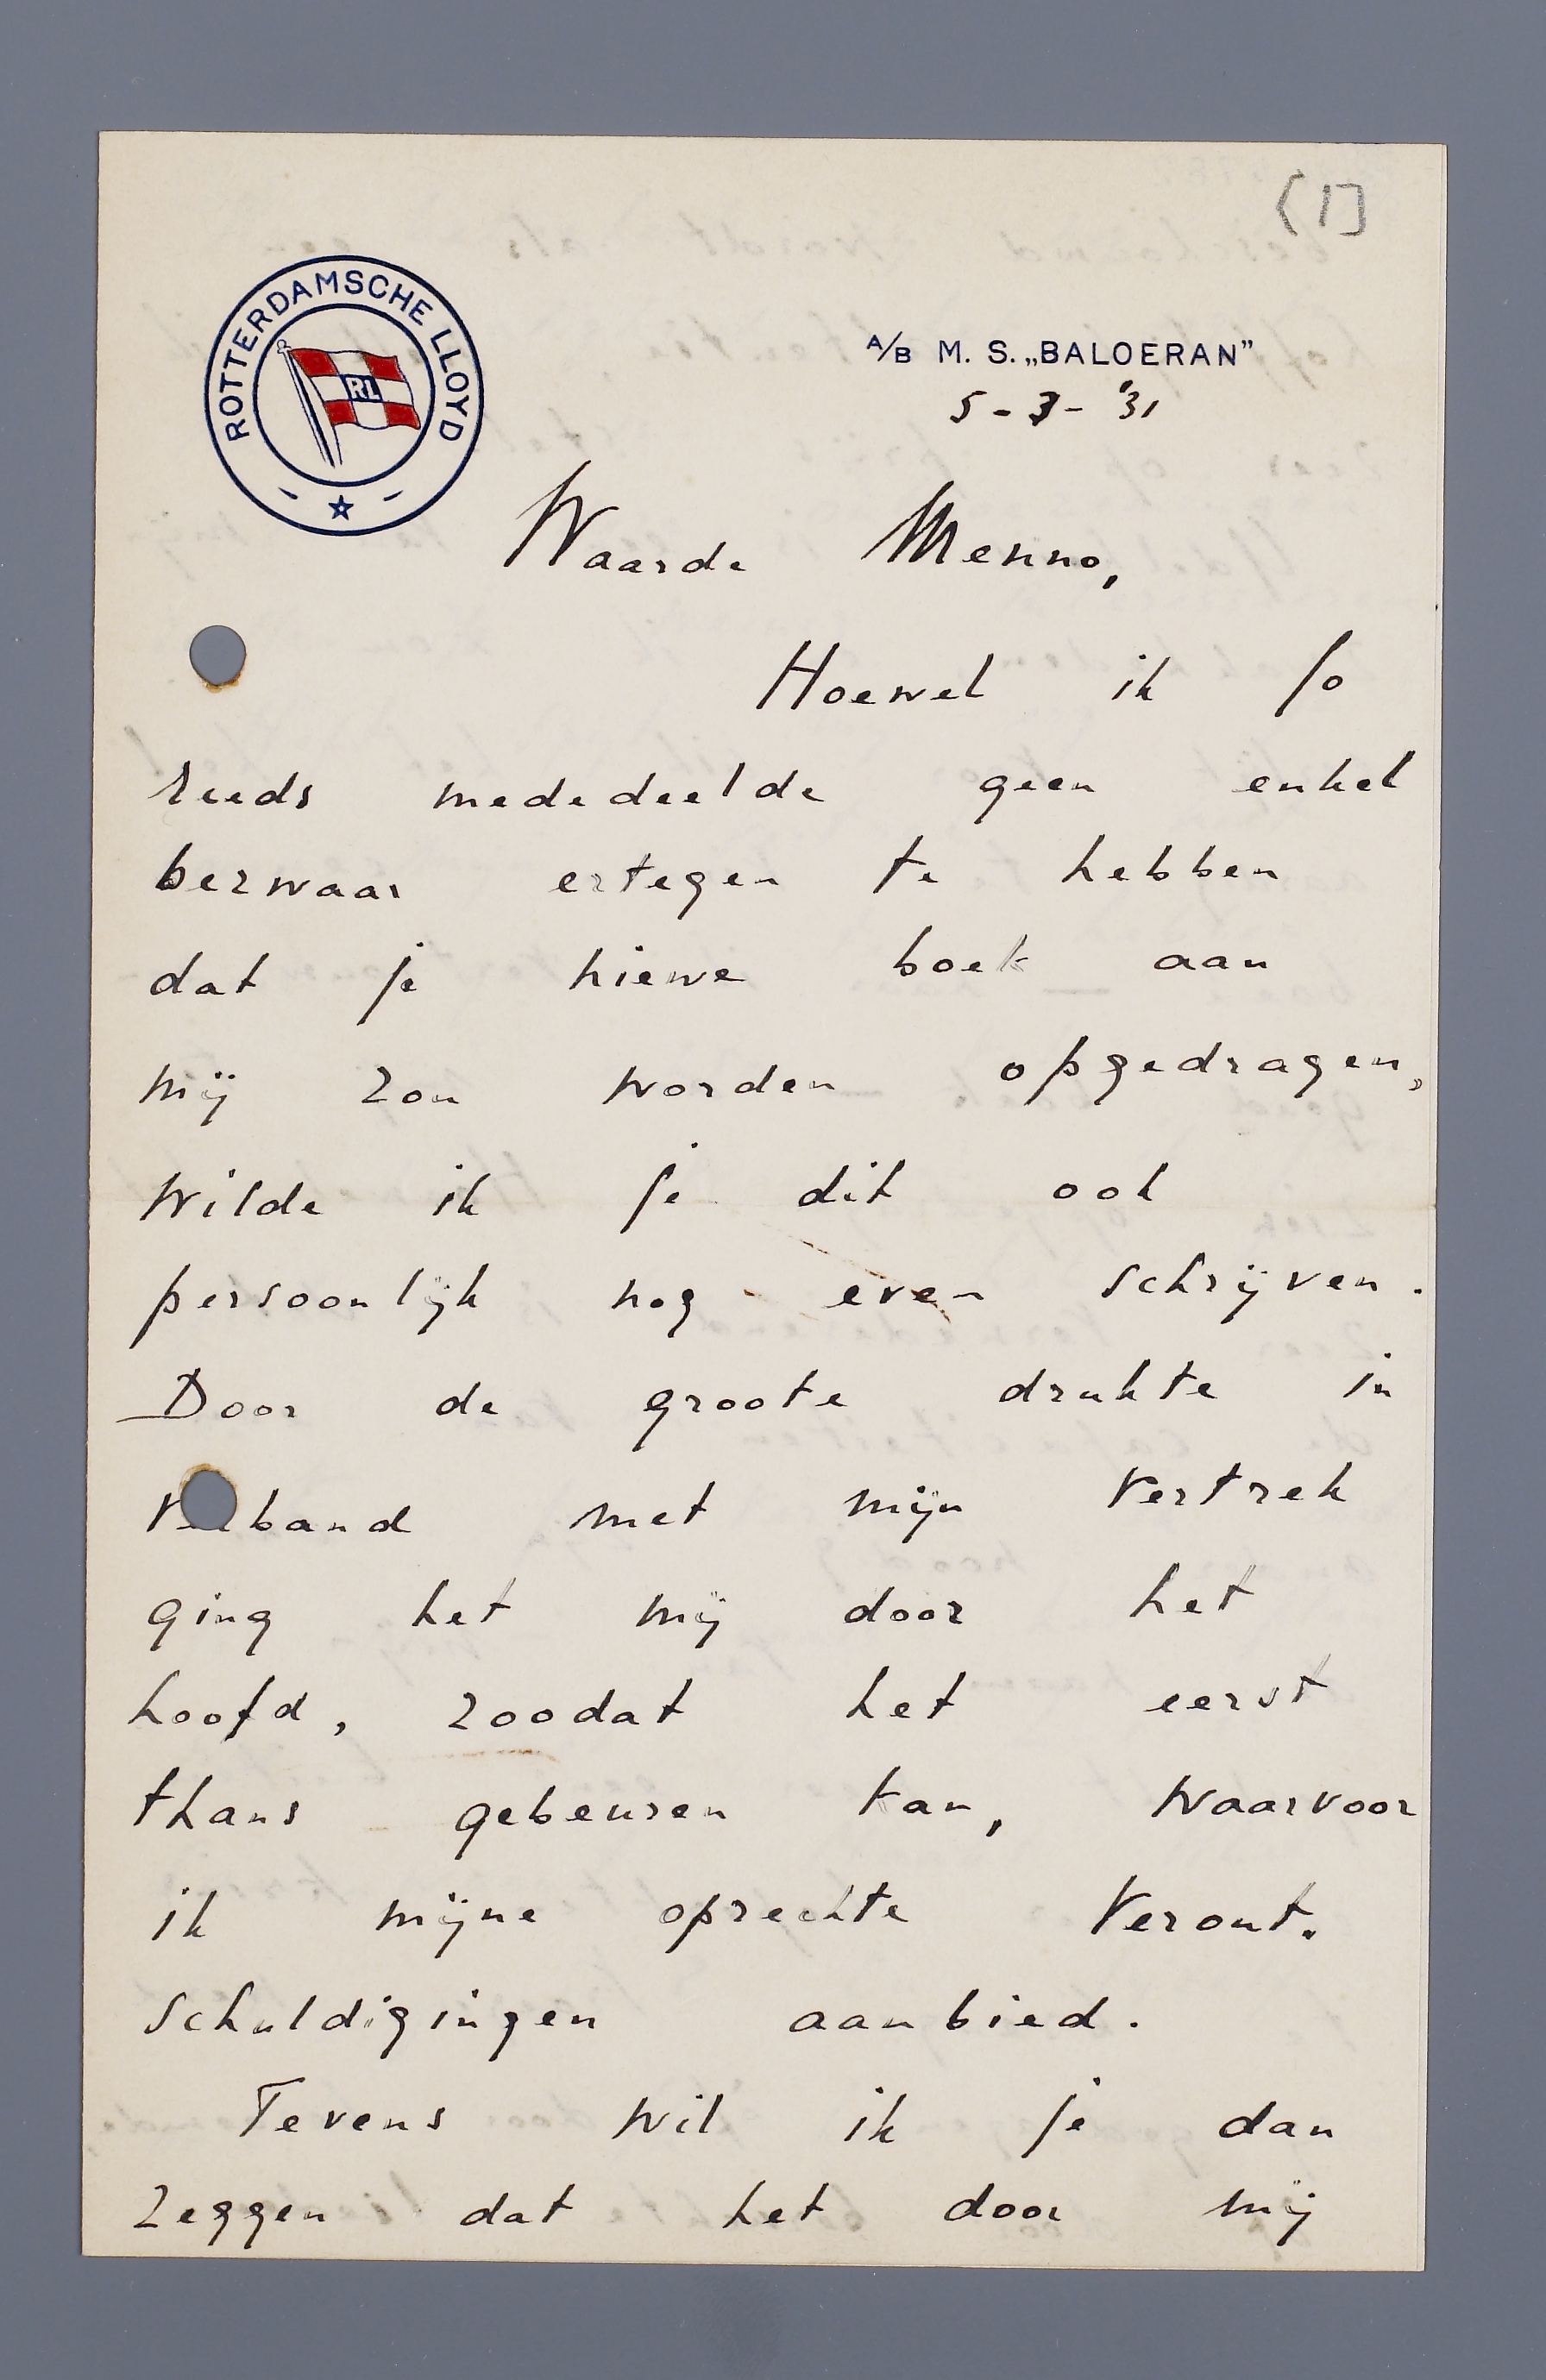 (1]
ROTTERDAMSCHE LLOYD
RL
A/B M. S. „BALOERAN”
5-3-'31
Waarde Menno,
Hoewel ik Jo
reeds mededeelde geen enkel
bezwaar ertegen te hebben
dat je nieuwe boek aan
mij zou worden opgedragen,
wilde ik je dit ook
persoonlijk nog even schrijven.
Door de groote drukte in
verband met mijn vertrek
ging het mij door het
hoofd, zoodat het eerst
thans gebeuren kan, waarvoor
ik mijne oprechte veront.
schuldigingen aanbied.
Tevens wil ik je dan
zeggen dat het door mij